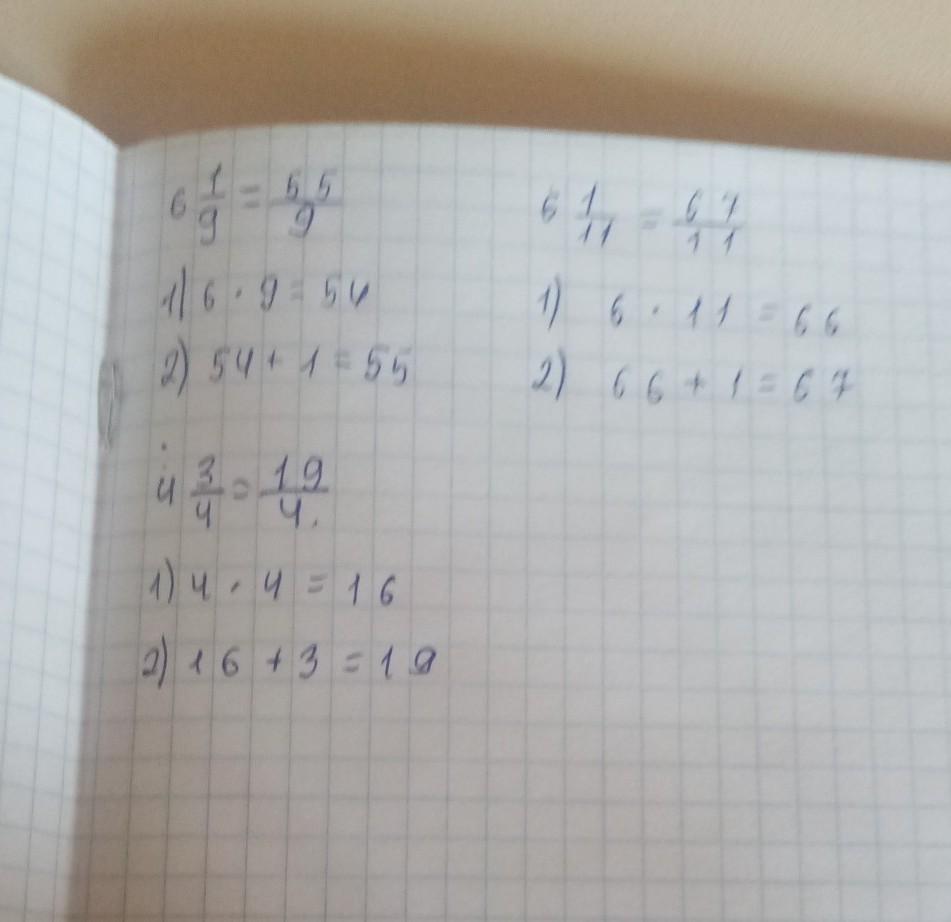 6 1/9 = 55/9
1) 6 · 9 = 54
2) 54 + 1 = 55
6 1/11 = 67/11
1) 6 · 11 = 66
2) 66 + 1 = 67
4 3/4 = 19/4.
1) 4 · 4 = 16
2) 16 + 3 = 19